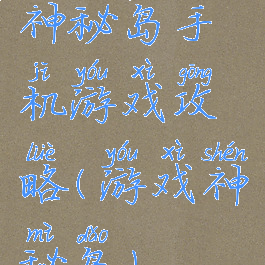 神秘岛手
jī yóu xì gōng
机游戏攻
lüè yóu xì shén
略(游戏神
mì dǎo
秘岛)